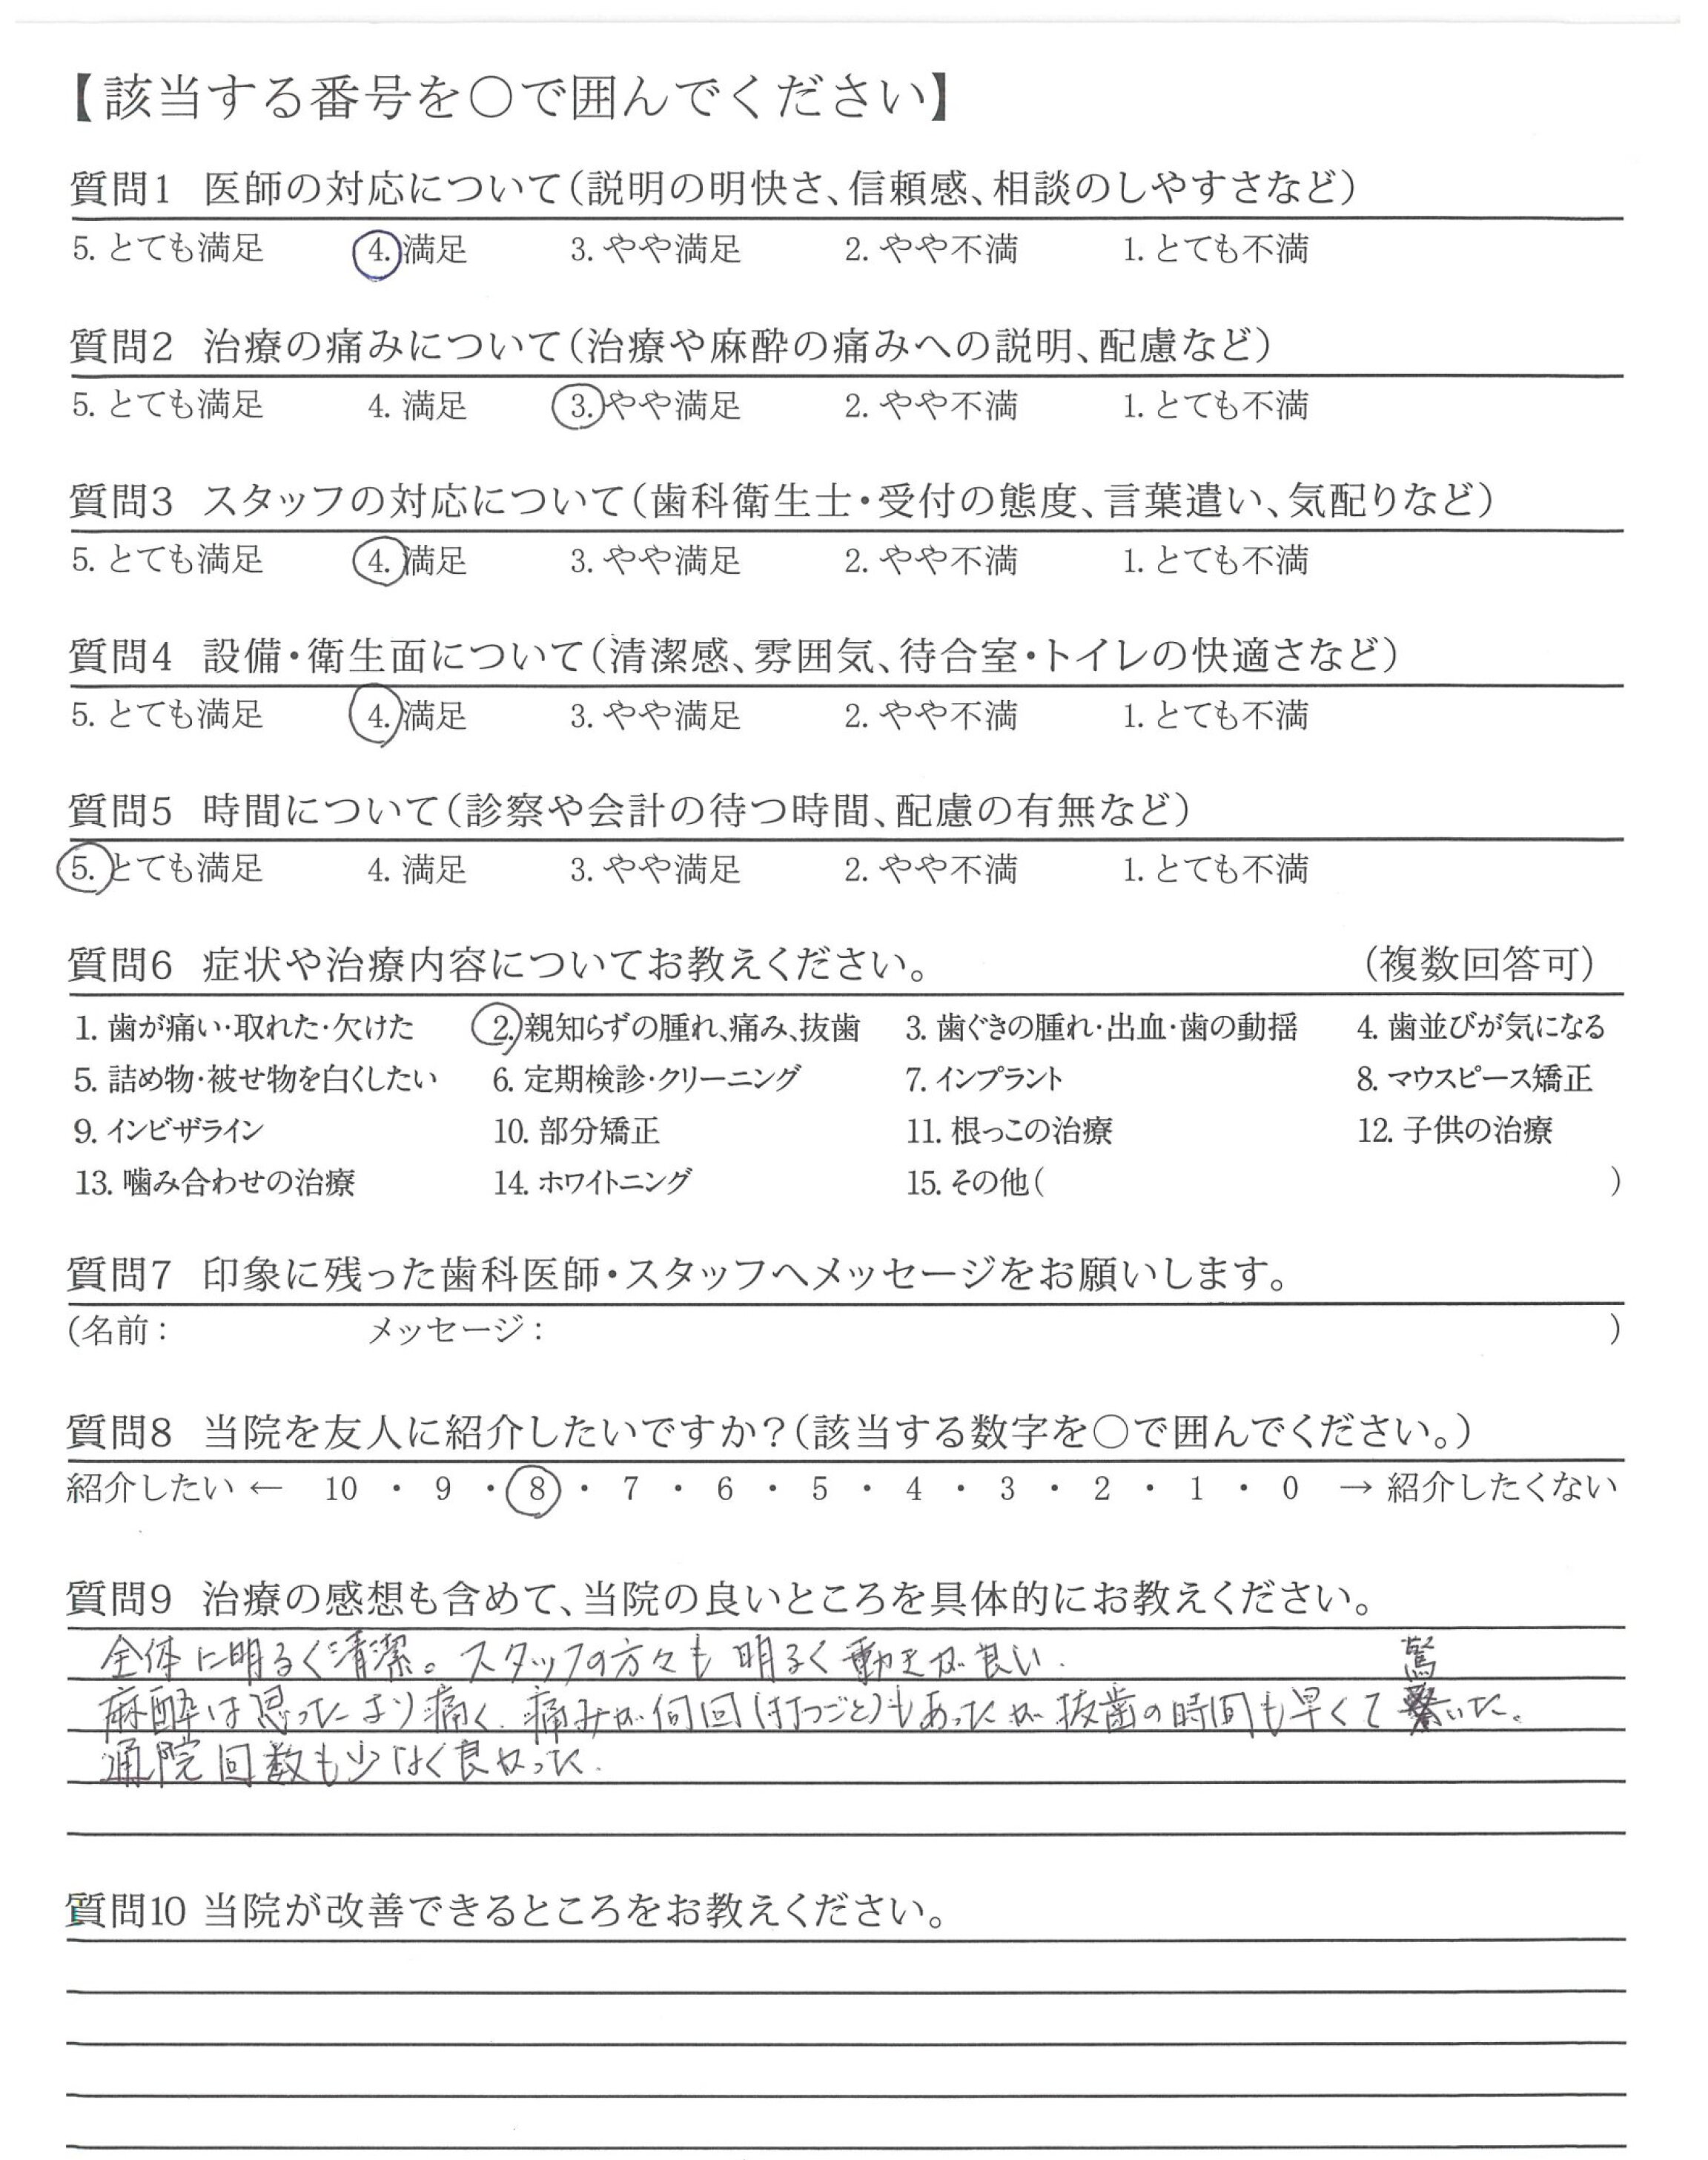 【該当する番号を○で囲んでください】
質問1 医師の対応について(説明の明快さ、信頼感、相談のしやすさなど)
5. とても満足 4. 満足 3. やや満足 2. やや不満 1. とても不満
質問2 治療の痛みについて(治療や麻酔の痛みへの説明、配慮など)
5. とても満足 4. 満足 3. やや満足 2. やや不満 1. とても不満
質問3 スタッフの対応について(歯科衛生士・受付の態度、言葉遣い、気配りなど)
5. とても満足 4. 満足 3. やや満足 2. やや不満 1. とても不満
質問4 設備・衛生面について(清潔感、雰囲気、待合室・トイレの快適さなど)
5. とても満足 4. 満足 3. やや満足 2. やや不満 1. とても不満
質問5 時間について(診察や会計の待つ時間、配慮の有無など)
5. とても満足 4. 満足 3. やや満足 2. やや不満 1. とても不満
質問6 症状や治療内容についてお教えください。 (複数回答可)
1. 歯が痛い・取れた・欠けた 2. 親知らずの腫れ、痛み、抜歯 3. 歯ぐきの腫れ・出血・歯の動揺 4. 歯並びが気になる
5. 詰め物・被せ物を白くしたい 6. 定期検診・クリーニング 7. インプラント 8. マウスピース矯正
9. インビザライン 10. 部分矯正 11. 根っこの治療 12. 子供の治療
13. 噛み合わせの治療 14. ホワイトニング 15. その他( )
質問7 印象に残った歯科医師・スタッフへメッセージをお願いします。
(名前: メッセージ: )
質問8 当院を友人に紹介したいですか?(該当する数字を○で囲んでください。)
紹介したい ← 10 ・ 9 ・ 8 ・ 7 ・ 6 ・ 5 ・ 4 ・ 3 ・ 2 ・ 1 ・ 0 → 紹介したくない
質問9 治療の感想も含めて、当院の良いところを具体的にお教えください。
全体に明るく清潔。スタッフの方々も明るく動きが良い.
麻酔は思ったより痛く、痛みが何回(打つごと)もあったが抜歯の時間も早くて驚いた。
通院回数も少なく良かった.
質問10 当院が改善できるところをお教えください。